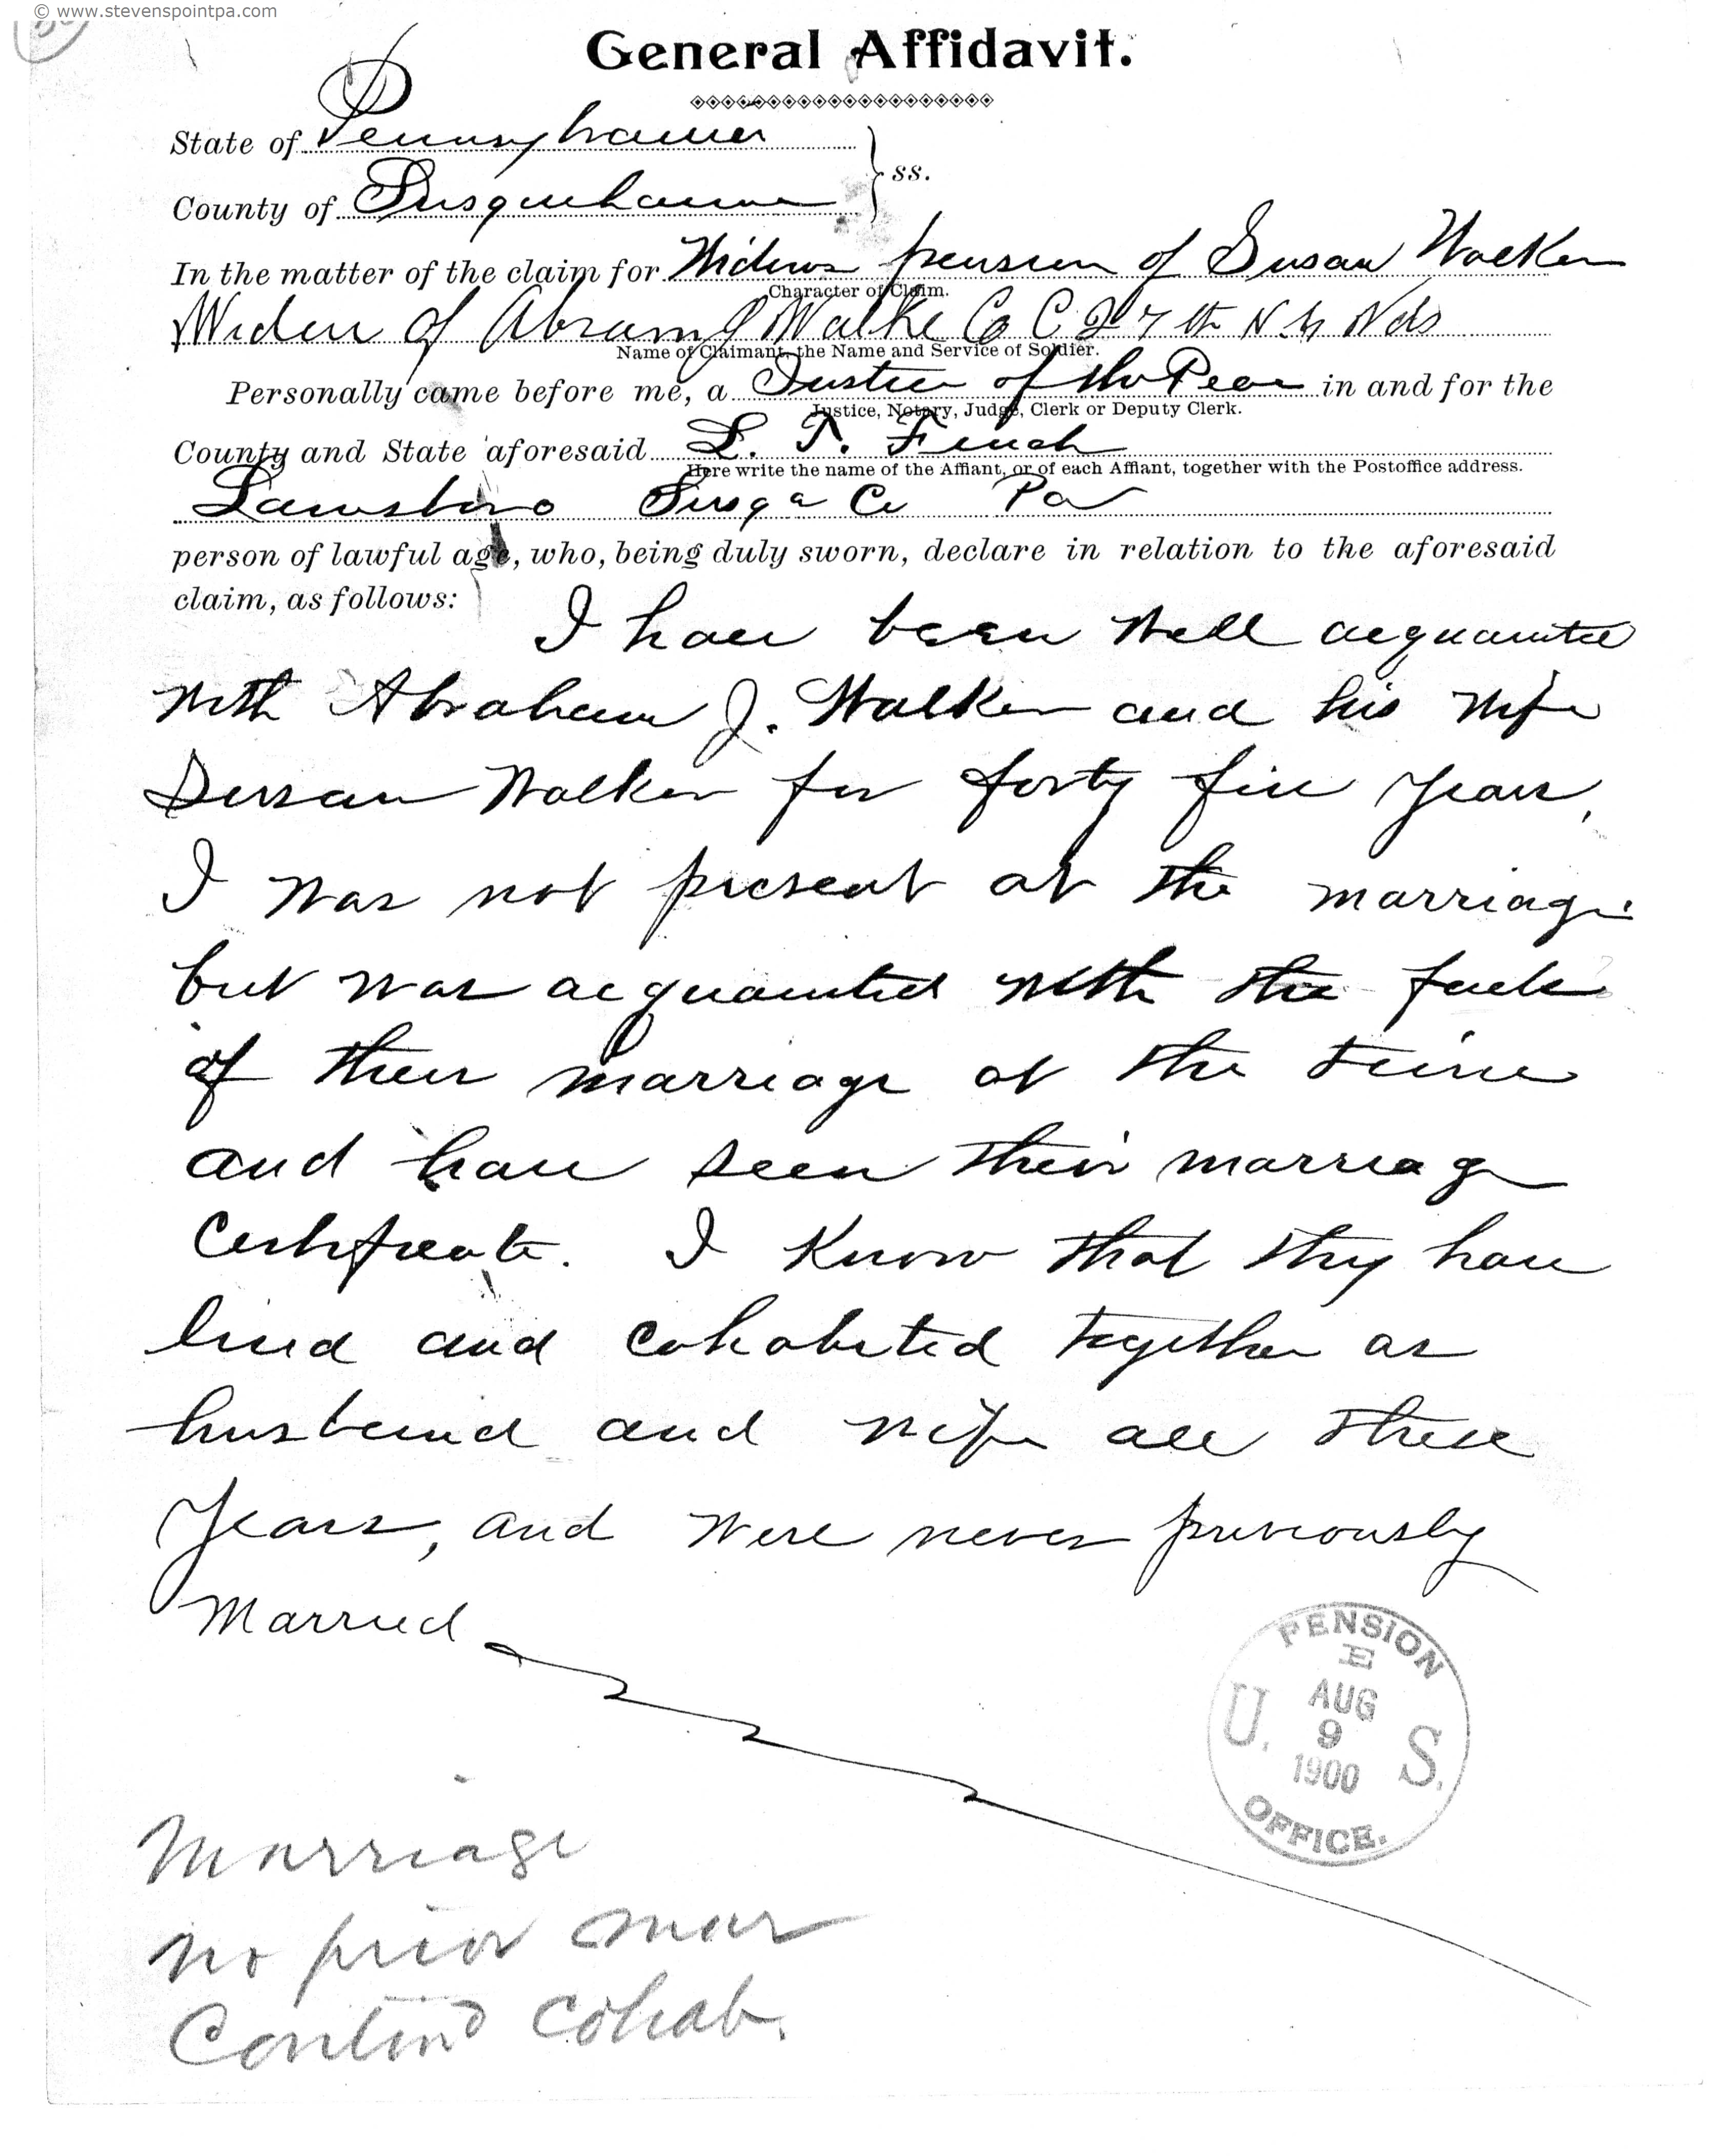 © www.stevenspointpa.com
General Affidavit.
State of Pennsylvania
County of Susquehanna
ss.
In the matter of the claim for Widows pension of Susan Walker
Character of Claim.
Widow of Abram J Walke Co C 27th N Y Vols
Name of Claimant, the Name and Service of Soldier.
Personally came before me, a Justice of the Peace in and for the
Justice, Notary, Judge, Clerk or Deputy Clerk.
County and State aforesaid L. T.
Here write the name of the Affiant, or of each Affiant, together with the Postoffice address.
Lanesboro Susqa Co Pa
person of lawful age, who, being duly sworn, declare in relation to the aforesaid
claim, as follows:
I have been well acquainted
with Abraham J. Walker and his wife
Sussan Walker for forty five years,
I was not present at the marriage
but was acquainted with the facts
of their marriage at the time
and have seen their marriage
Certificate. I know that they have
lived and cohabited together as
husband and wife all these
years, and were never previously
Married
PENSION
E
AUG
9
1900
U. S.
OFFICE.
Marriage
no prior mar
Contind cohab.